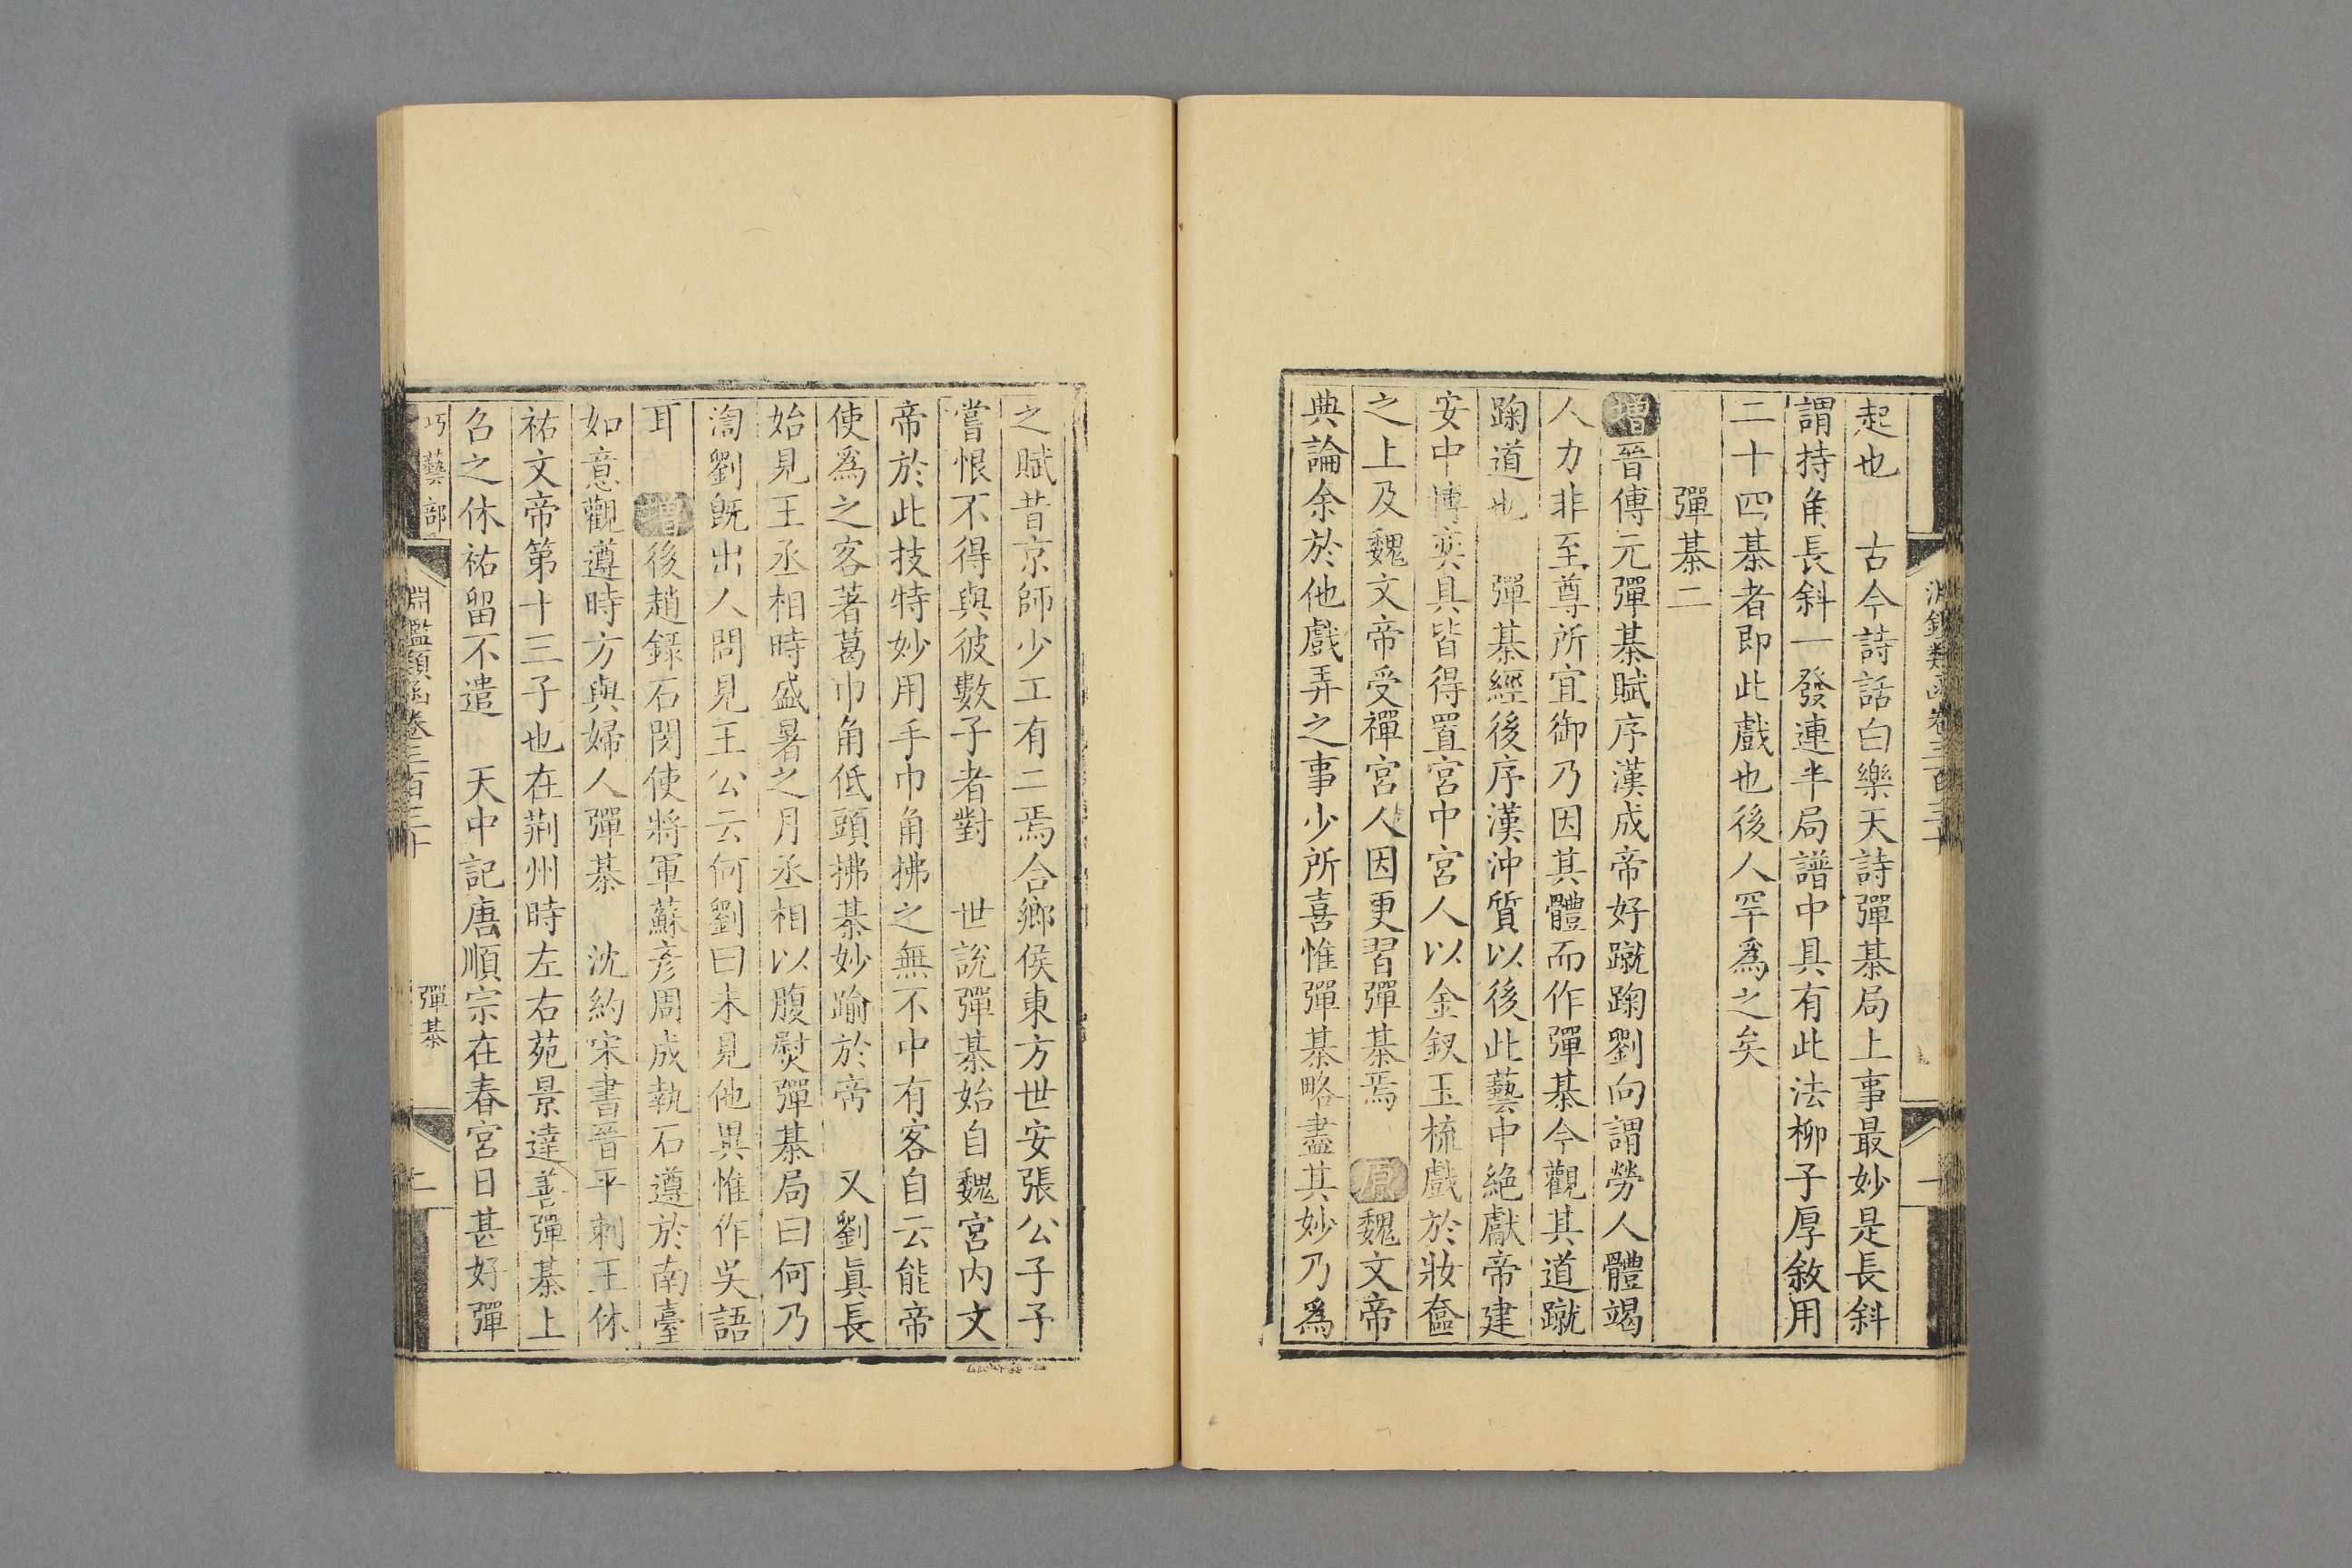 起也 古今詩話白樂天詩彈棊局上事最妙是長斜
謂持角長斜一發連半局譜中具有此法柳子厚敘用
二十四棊者即此戲也後人罕爲之矣
彈棊二
增晉傅元彈棊賦序漢成帝好蹴踘劉向謂勞人體竭
人力非至尊所宜御乃因其體而作彈棊今觀其道蹴
踘道也 彈棊經後序漢沖質以後此藝中絶獻帝建
安中博奕具皆得置宮中宮人以金釵玉梳戲於妝奩
之上及魏文帝受禪宮人因更習彈棊焉 原魏文帝
典論余於他戲弄之事少所喜惟彈棊略盡其妙乃爲
之賦昔京師少工有二焉合鄉侯東方世安張公子予
嘗恨不得與彼數子者對 世說彈棊始自魏宮内文
帝於此技特妙用手巾角拂之無不中有客自云能帝
使爲之客著葛巾角低頭拂棊妙踰於帝 又劉眞長
始見王丞相時盛暑之月丞相以腹熨彈棊局曰何乃
渹劉既出人問見王公云何劉曰未見他異惟作吳語
耳 增後趙錄石閔使將軍蘇彥周成執石遵於南臺
如意觀遵時方與婦人彈棊 沈約宋書晉平剌王休
祐文帝第十三子也在荆州時左右苑景達善彈棊上
召之休祐留不遣 天中記唐順宗在春宮日甚好彈
巧藝部 淵鑑類函卷三百三十 彈棊 二